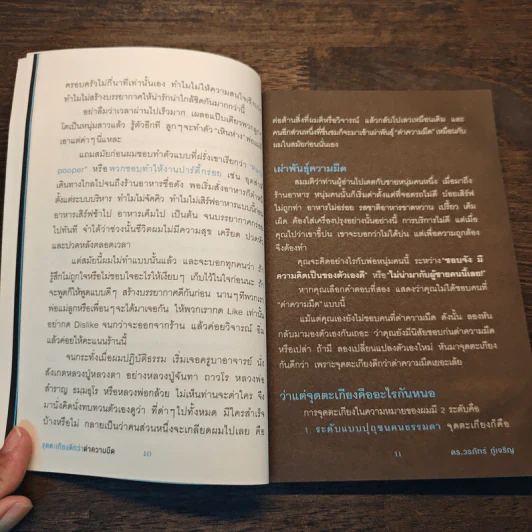 ครอบครัวไม่กี่นาทีเท่านั้นเอง ทำไมไม่ให้ความสนใจ
ทำไมไม่สร้างบรรยากาศให้น่ารักน่าใกล้ชิดกันมากกว่านี้
อย่าลืมว่าเวลาผ่านไปเร็วมาก เผลอแป๊บเดียวพวกลูก
โตเป็นหนุ่มสาวแล้ว รู้ตัวอีกที ลูกๆจะทำตัว "เหินห่าง"
เอาแต่ด่าๆนี่แหละ
แถมสมัยก่อนผมชอบทำตัวแบบที่ฝรั่งเขาเรียกว่า "Party
pooper" หรือ พวกชอบทำให้งานปาร์ตี้กร่อย เช่น
เดินทางไกลไปจนถึงร้านอาหารชื่อดัง พอเริ่มสั่งอาหารก็
ตั้งแต่ระบบบริหาร ทำไมไม่จัดคิว ทำไมไม่เสิร์ฟอาหารแบบนั้น
อาหารเสิร์ฟช้าไป อาหารเค็มไป เป็นต้น จนบรรยากาศกร่อย
ไปทันที จำได้ว่าช่วงนั้นชีวิตผมไม่มีความสุข เครียด
และปวดหลังตลอดเวลา
แต่สมัยนี้ผมไม่ทำแบบนั้นแล้ว และจะบอกทุกคนว่า ถ้า
รู้สึกไม่ถูกใจหรือไม่ชอบใจอะไรให้เงียบๆ เก็บไว้ในใจก่อนนะ ถ้า
จะพูดก็ให้พูดแบบดีๆ สร้างบรรยากาศดีกันก่อน นานๆทีที่พวกเรา
พ่อแม่ลูกหรือเพื่อนๆจะได้มาเจอกัน ให้พวกเรากด Like เท่านั้น
อย่ากด Dislike จนกว่าจะออกจากร้าน แล้วค่อยวิจารณ์ ชิม
แล้วค่อยให้คะแนนร้านนี้
จนกระทั่งเมื่อผมปฏิบัติธรรม เริ่มเจอครูบาอาจารย์ นั่ง
สังเกตหลวงปู่หลวงตา อย่างหลวงปู่จันทา ถาวโร หลวงพ่อ
สำราญ ธมฺมธุโร หรือหลวงพ่อกล้วย ไม่เห็นท่านจะด่าใคร จึง
มานั่งคิดนั่งทบทวนตัวเองดูว่า ที่ด่าๆไปทั้งหมด มีใครสำเร็จ
บ้างหรือไม่ กลายเป็นว่าคนส่วนหนึ่งจะเกลียดผมไปเลย คือ
จุดตะเกียงดีกว่าด่าความมืด 10
ต่อต้านสิ่งที่ผมติหรือวิจารณ์ แล้วกลับไปเลวเหมือนเดิม และ
คนอีกส่วนหนึ่งที่ชื่นชมก็จะมาเข้าเผ่าพันธุ์ "ด่าความมืด" เหมือนกับ
ผมในสมัยก่อนนั่นเอง
เผ่าพันธุ์ความมืด
สมมติว่าท่านผู้อ่านไปเดตกับชายหนุ่มคนหนึ่ง เมื่อมาถึง
ร้านอาหาร หนุ่มคนนั้นก็เริ่มด่าตั้งแต่ที่จอดรถไม่ดี บ๋อยเสิร์ฟ
ไม่ถูกท่า อาหารไม่อร่อย รสชาติอาหารขาดหวาน เปรี้ยว เค็ม
เผ็ด ต้องใส่เครื่องปรุงอย่างนั้นอย่างนี้ การบริการไม่ดี แต่เมื่อ
คุณไปว่าเขาขี้บ่น เขาจะบอกว่าไม่ได้บ่น แต่เพื่อความถูกต้อง
จึงต้องทำ
คุณจะคิดอย่างไรกับพ่อหนุ่มคนนี้ ระหว่าง "ชอบจัง มี
ความคิดเป็นของตัวเองดี" หรือ "ไม่น่ามากับผู้ชายคนนี้เลย!"
หากคุณเลือกคำตอบที่สอง แสดงว่าคุณไม่ได้ชอบคนที่
"ด่าความมืด" แบบนี้
แม้แต่คุณเองยังไม่ชอบคนที่ด่าความมืด ดังนั้น ลองหัน
กลับมามองตัวเองกันเถอะ ว่าคุณยังมีนิสัยชอบก่นด่าความมืด
หรือเปล่า ถ้ามี ลองเปลี่ยนแปลงตัวเองใหม่ หันมาจุดตะเกียง
กันดีกว่า เพราะจุดตะเกียงดีกว่าด่าความมืดเยอะเลย
ว่าแต่จุดตะเกียงคืออะไรกันหนอ
การจุดตะเกียงในความหมายของผมมี 2 ระดับคือ
1. ระดับแบบปุถุชนคนธรรมดา จุดตะเกียงก็คือ
11 ดร.วรภัทร์ ภู่เจริญ